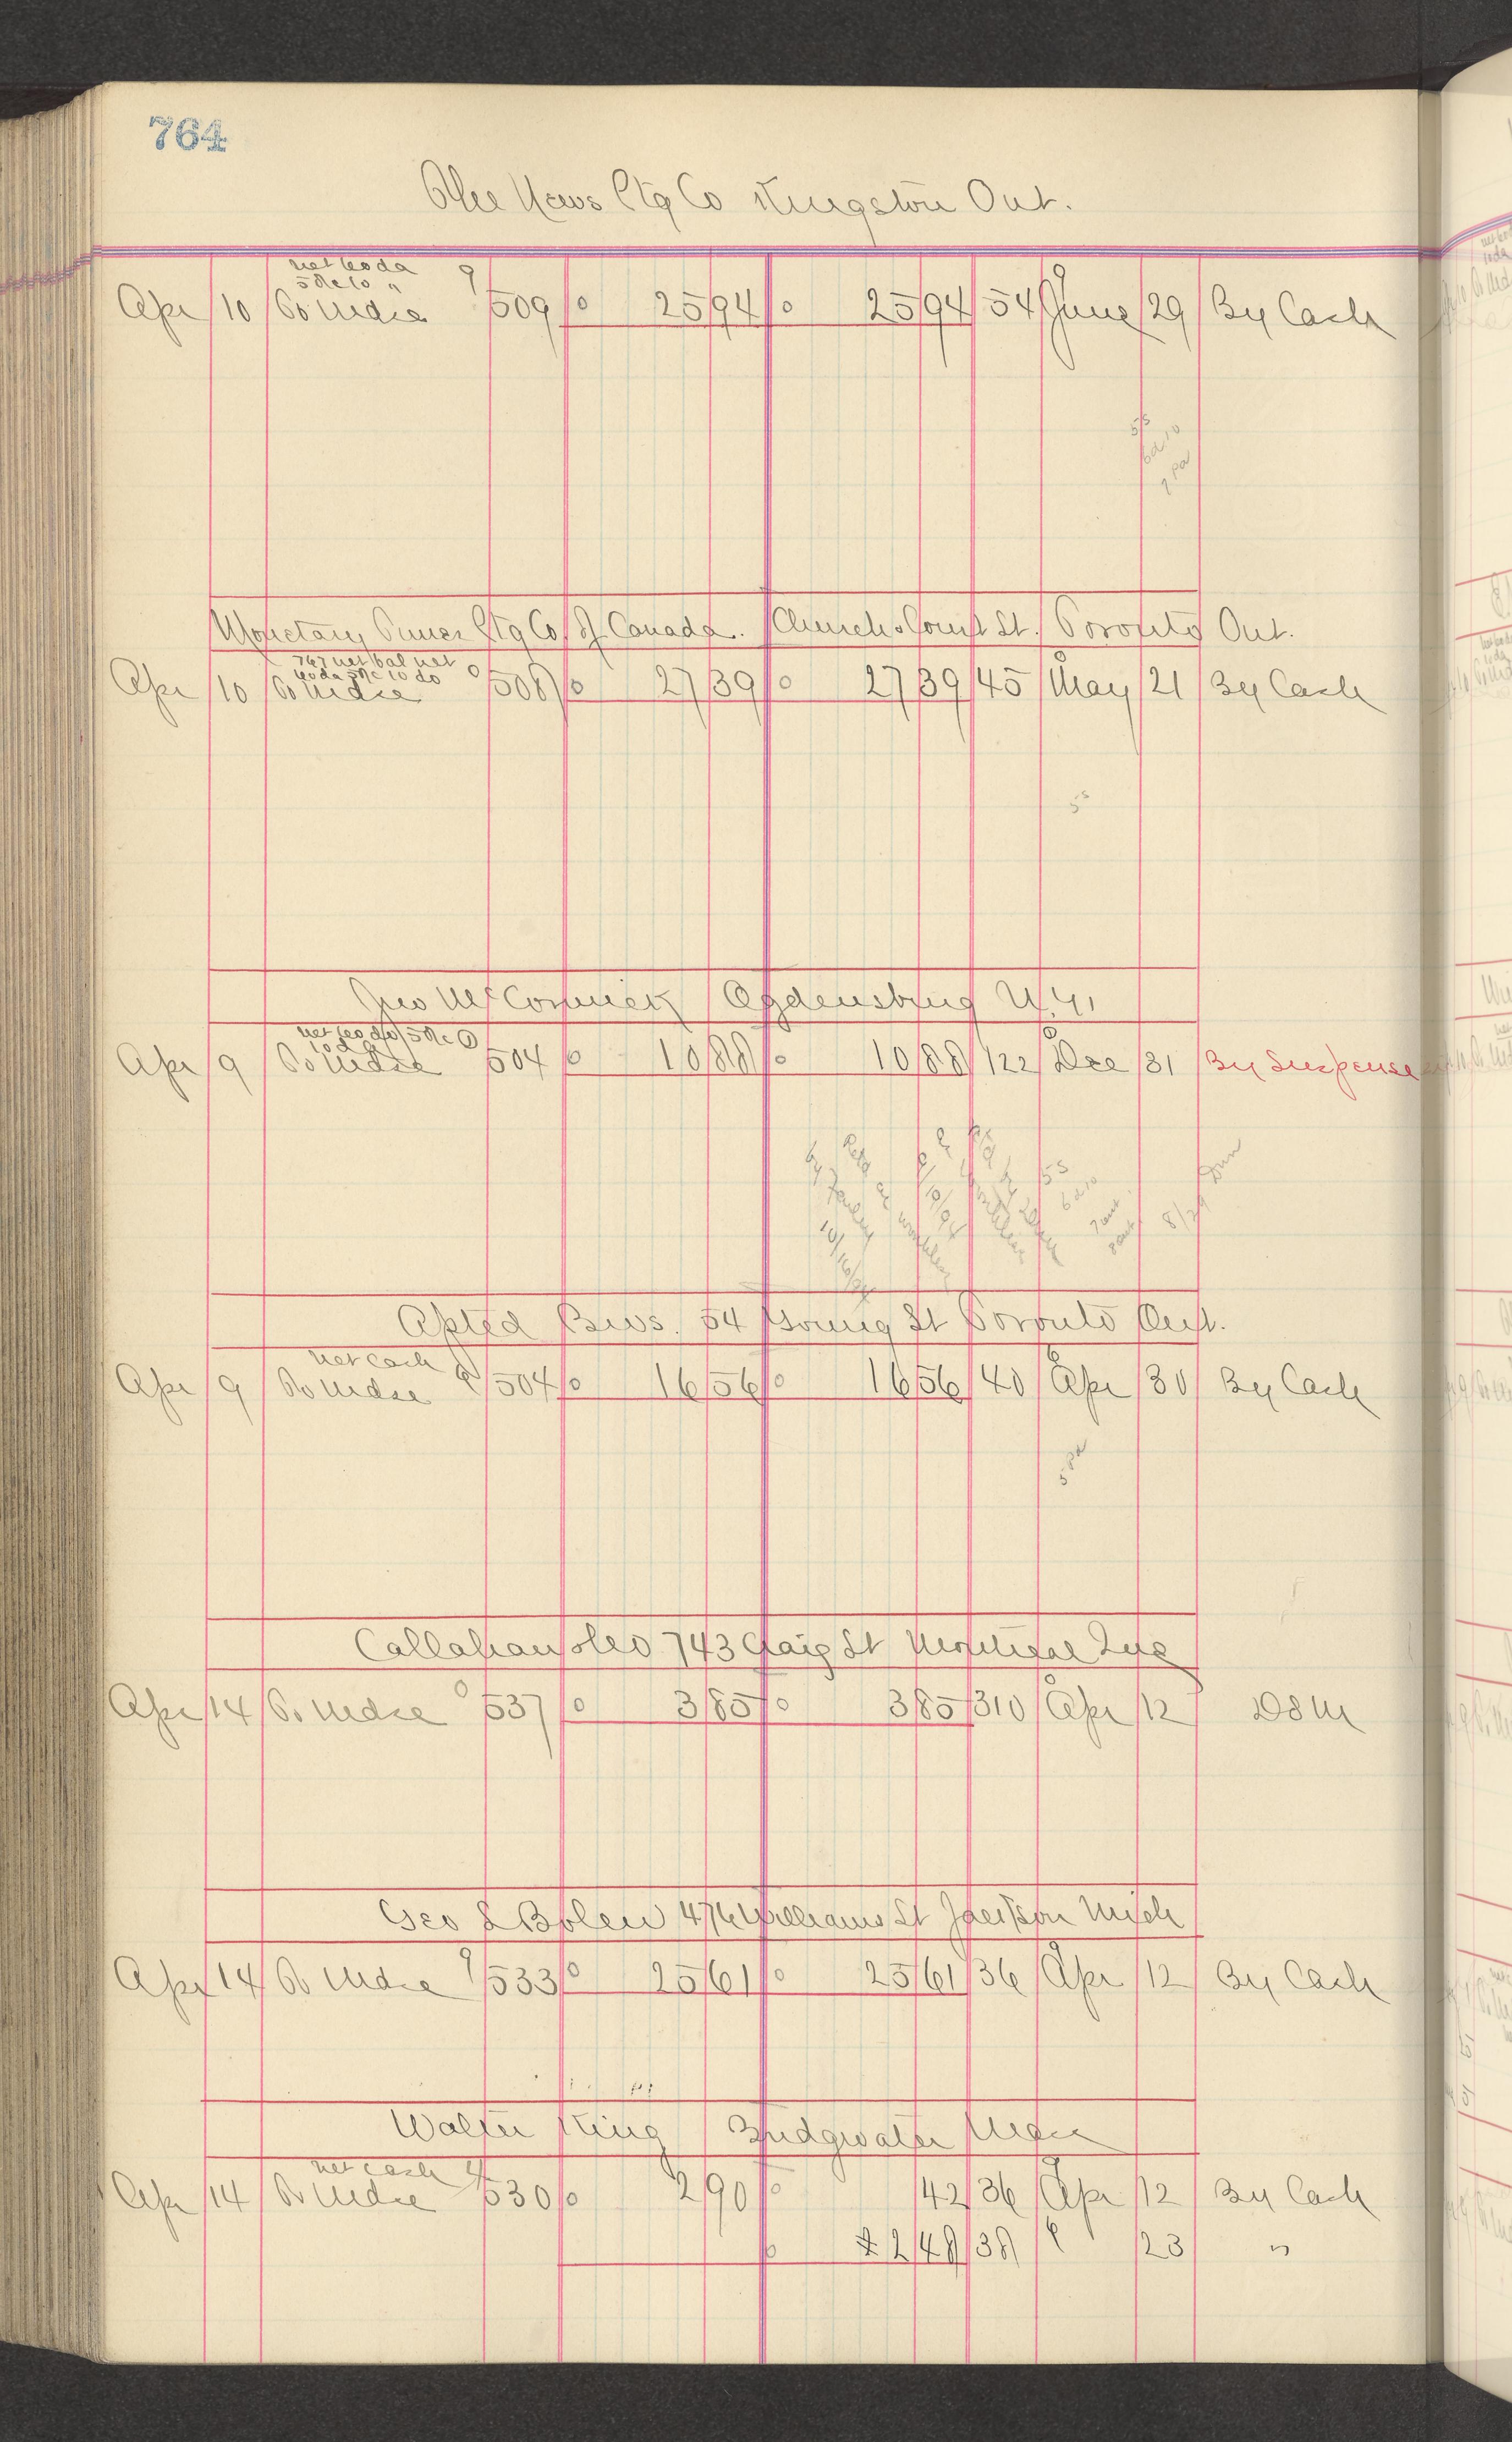 764
News Ptg Co Kingston Ont.
net 60 da
5% 10 "
Apr 10 To Mdse 509 25 94 25 94 54 June 29 By Cash
5/5
6d10
7 Pd
Monetary Times Ptg Co of Canada. Church & Court St. Toronto Ont.
net bal net
60 da 5% 10 do
Apr 10 To Mdse 508 27 39 27 39 45 May 21 By Cash
5 s
Jno McCormick Ogdensburg N.Y.
net 60 da 5%
10 da
Apr 9 To Mdse 504 10 88 10 88 122 Dec 31 By Suspense
5s
6 d 10
8/29
Apted Bros. 54 Young St Toronto Ont.
net cash
Apr 9 To Mdse 504 16 56 16 56 40 Apr 30 By Cash
5 Pd
Callahan & Co 743 Craig St Montreal Que
Apr 14 To Mdse 537 3 85 3 85 310 Apr 12 D & M
Geo L Bolen 476 Williams St Jackson Mich
Apr 14 To Mdse 533 25 61 25 61 36 Apr 12 By Cash
Walter King Bridgwater Mass
net cash
Apr 14 To Mdse 530 2 90 42 36 Apr 12 By Cash
2 48 38 " 23 "